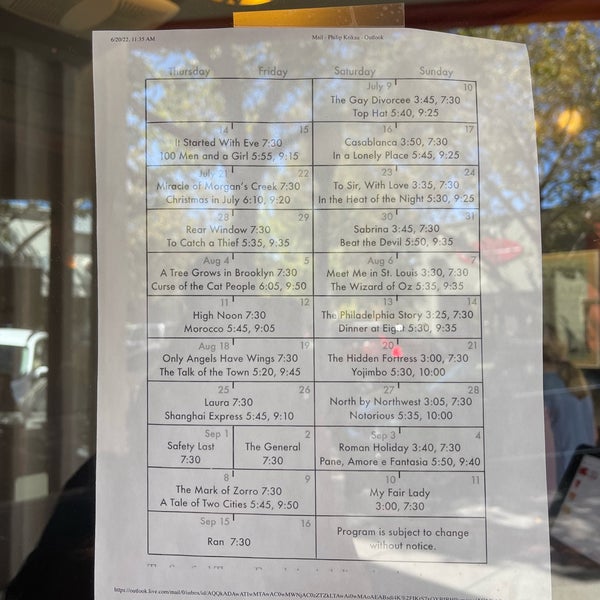 6/20/22, 11:35 AM Mail - Philip Kukua - Outlook
Thursday Friday Saturday Sunday
July 9 10
The Gay Divorcee 3:45, 7:30
Top Hat 5:40, 9:25
14 15
It Started With Eve 7:30
100 Men and a Girl 5:55, 9:15
16 17
Casablanca 3:50, 7:30
In a Lonely Place 5:45, 9:25
July 21 22
Miracle of Morgan's Creek 7:30
Christmas in July 6:10, 9:20
23 24
To Sir, With Love 3:35, 7:30
In the Heat of the Night 5:30, 9:25
28 29
Rear Window 7:30
To Catch a Thief 5:35, 9:35
30 31
Sabrina 3:45, 7:30
Beat the Devil 5:50, 9:35
Aug 4 5
A Tree Grows in Brooklyn 7:30
Curse of the Cat People 6:05, 9:50
Aug 6 7
Meet Me in St. Louis 3:30, 7:30
The Wizard of Oz 5:35, 9:35
11 12
High Noon 7:30
Morocco 5:45, 9:05
13 14
The Philadelphia Story 3:25, 7:30
Dinner at Eight 5:30, 9:35
Aug 18 19
Only Angels Have Wings 7:30
The Talk of the Town 5:20, 9:45
20 21
The Hidden Fortress 3:00, 7:30
Yojimbo 5:30, 10:00
25 26
Laura 7:30
Shanghai Express 5:45, 9:10
27 28
North by Northwest 3:05, 7:30
Notorious 5:35, 10:00
Sep 1
Safety Last
7:30
2
The General
7:30
Sep 3 4
Roman Holiday 3:40, 7:30
Pane, Amore e Fantasia 5:50, 9:40
8 9
The Mark of Zorro 7:30
A Tale of Two Cities 5:45, 9:50
10 11
My Fair Lady
3:00, 7:30
Sep 15 16
Ran 7:30
Program is subject to change
without notice.